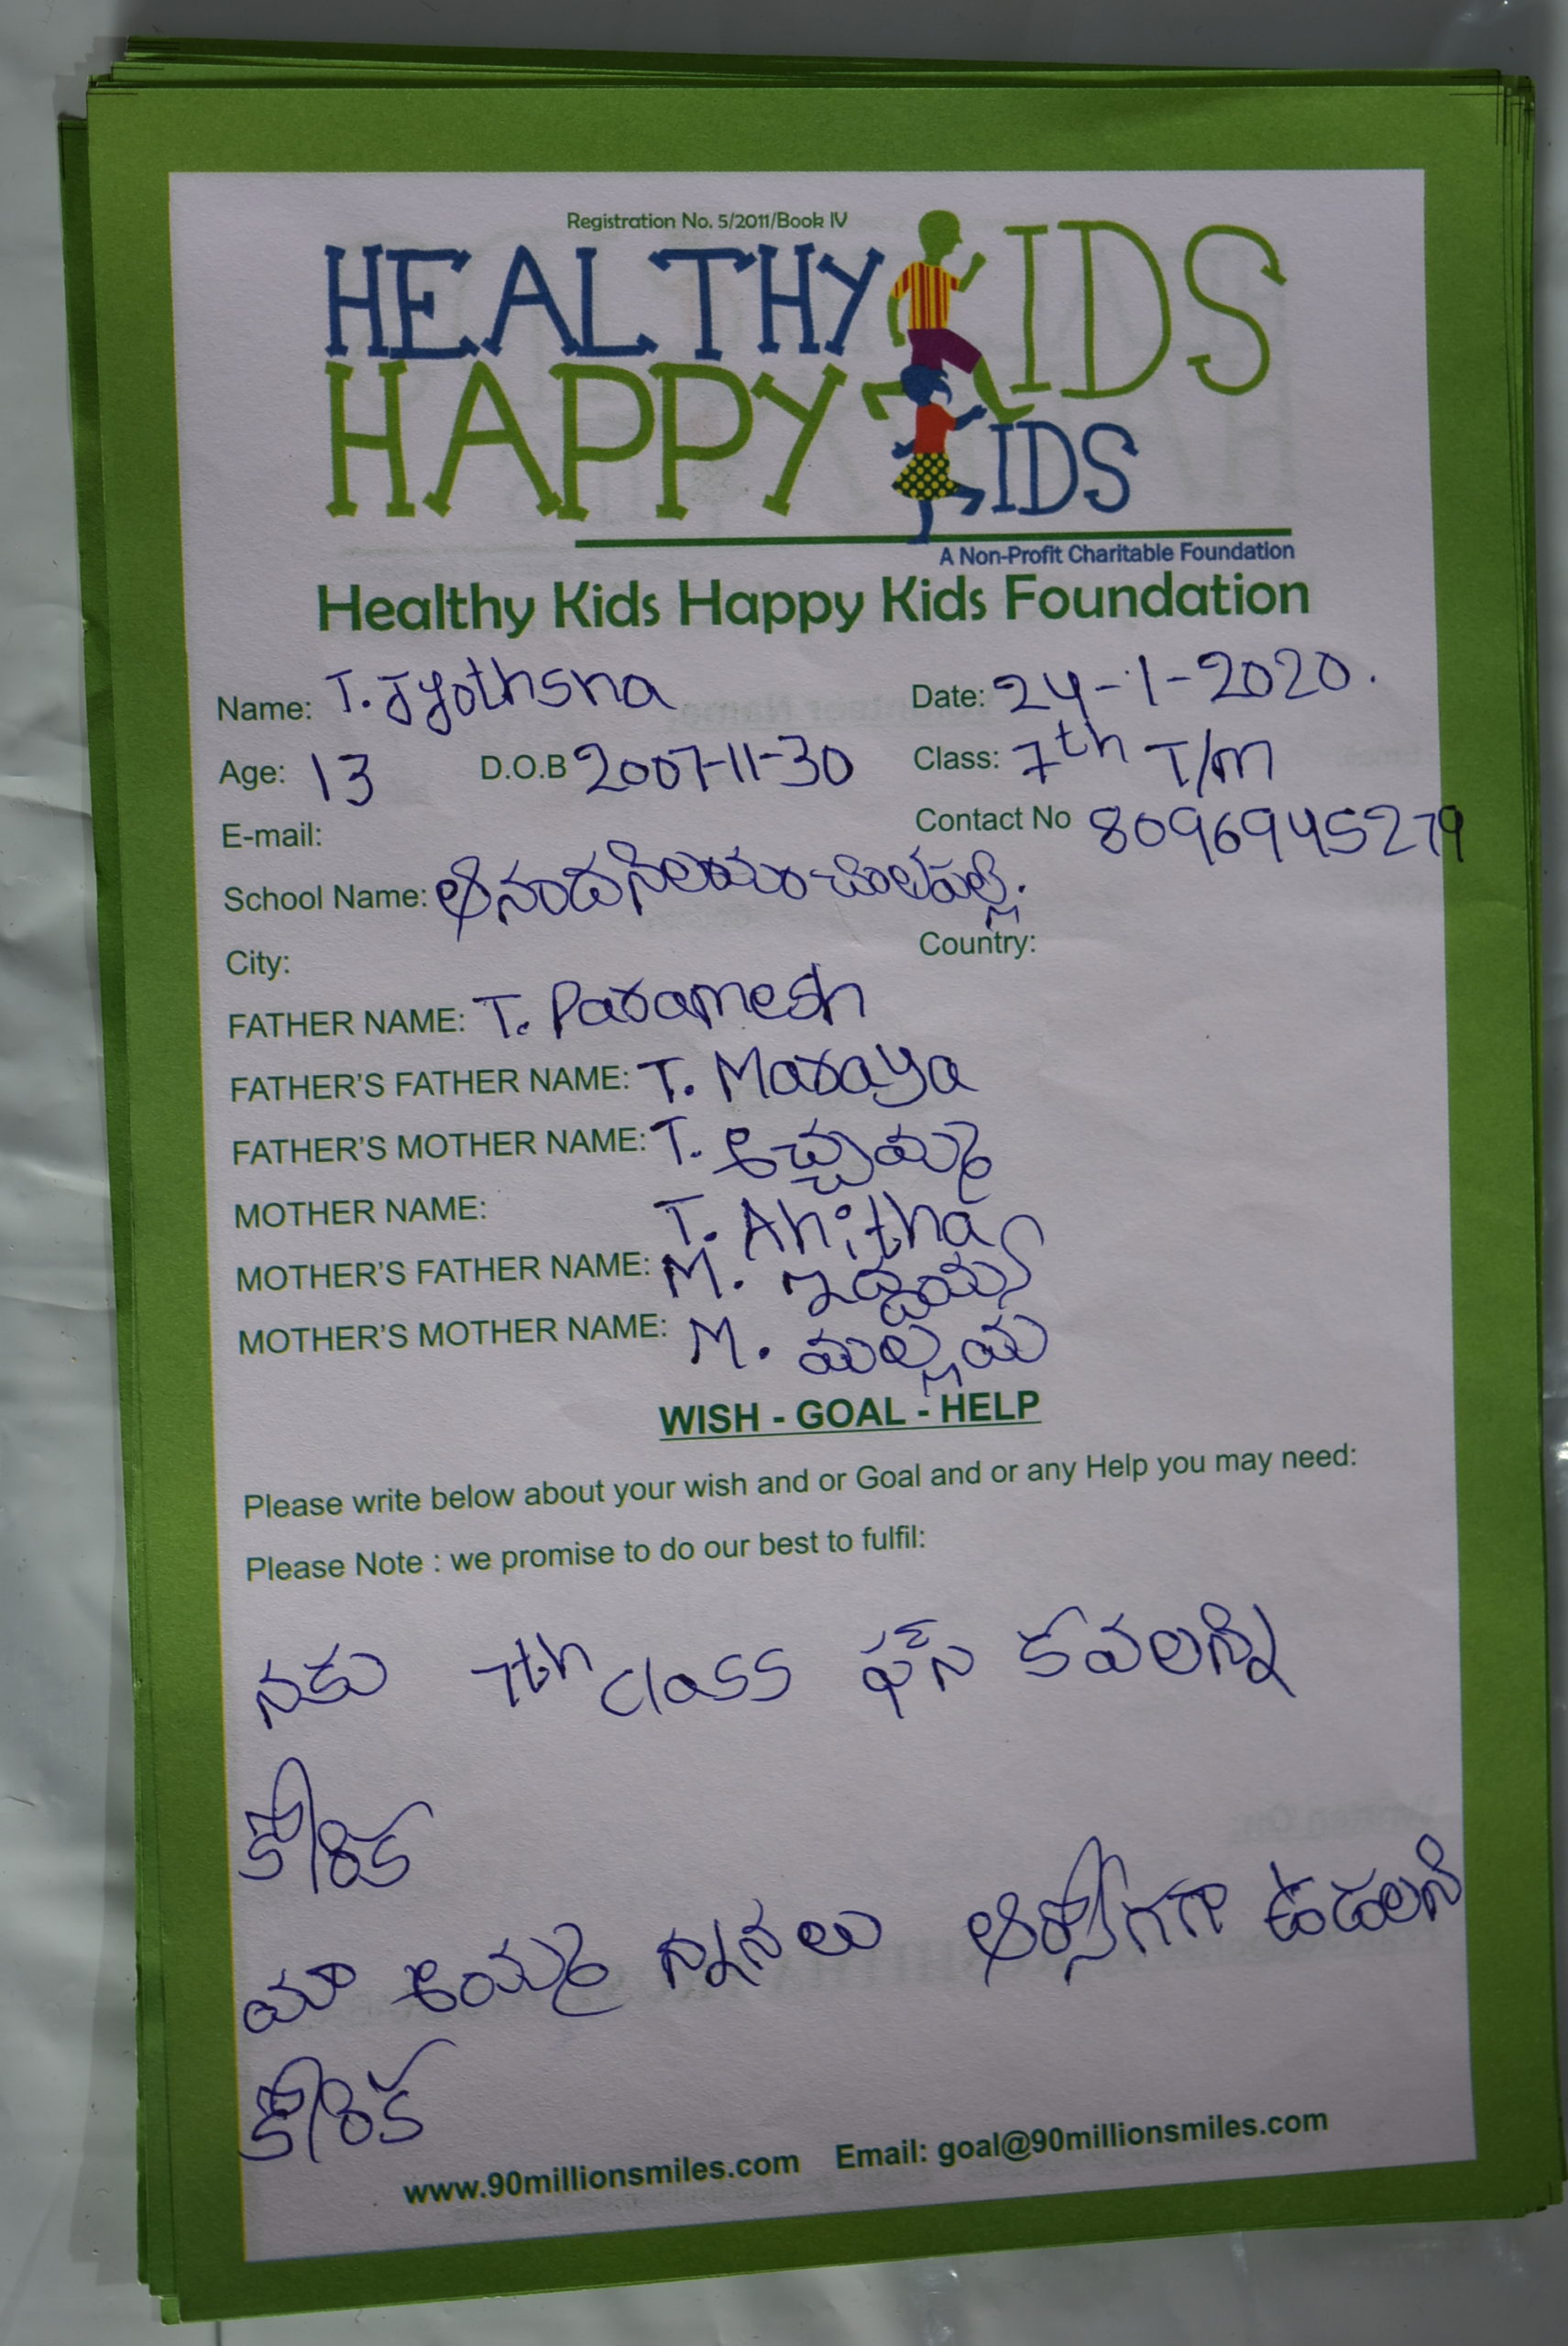 Registration No. 5/2011/Book IV
HEALTHY KIDS
HAPPY KIDS
A Non-Profit Charitable Foundation
Healthy Kids Happy Kids Foundation
Name: T. Jyothsna Date: 24-1-2020.
Age: 13 D.O.B 2007-11-30 Class: 7th T/m
E-mail: Contact No 8096945279
School Name: ఆనందనిలయం చోలపల్లి.
City: Country:
FATHER NAME: T. Paramesh
FATHER'S FATHER NAME: T. Maraya
FATHER'S MOTHER NAME: T. అచ్చుమ్మ
MOTHER NAME: T. Anitha
MOTHER'S FATHER NAME: M.
MOTHER'S MOTHER NAME: M. మల్లమ
WISH - GOAL - HELP
Please write below about your wish and or Goal and or any Help you may need:
Please Note : we promise to do our best to fulfil:
నకు 7th class ఫస్ కవలన్ని
కోరిక
మా అమ్మ నన్నలు ఆరోగగా ఉడలని
కోరిక
www.90millionsmiles.com Email: goal@90millionsmiles.com